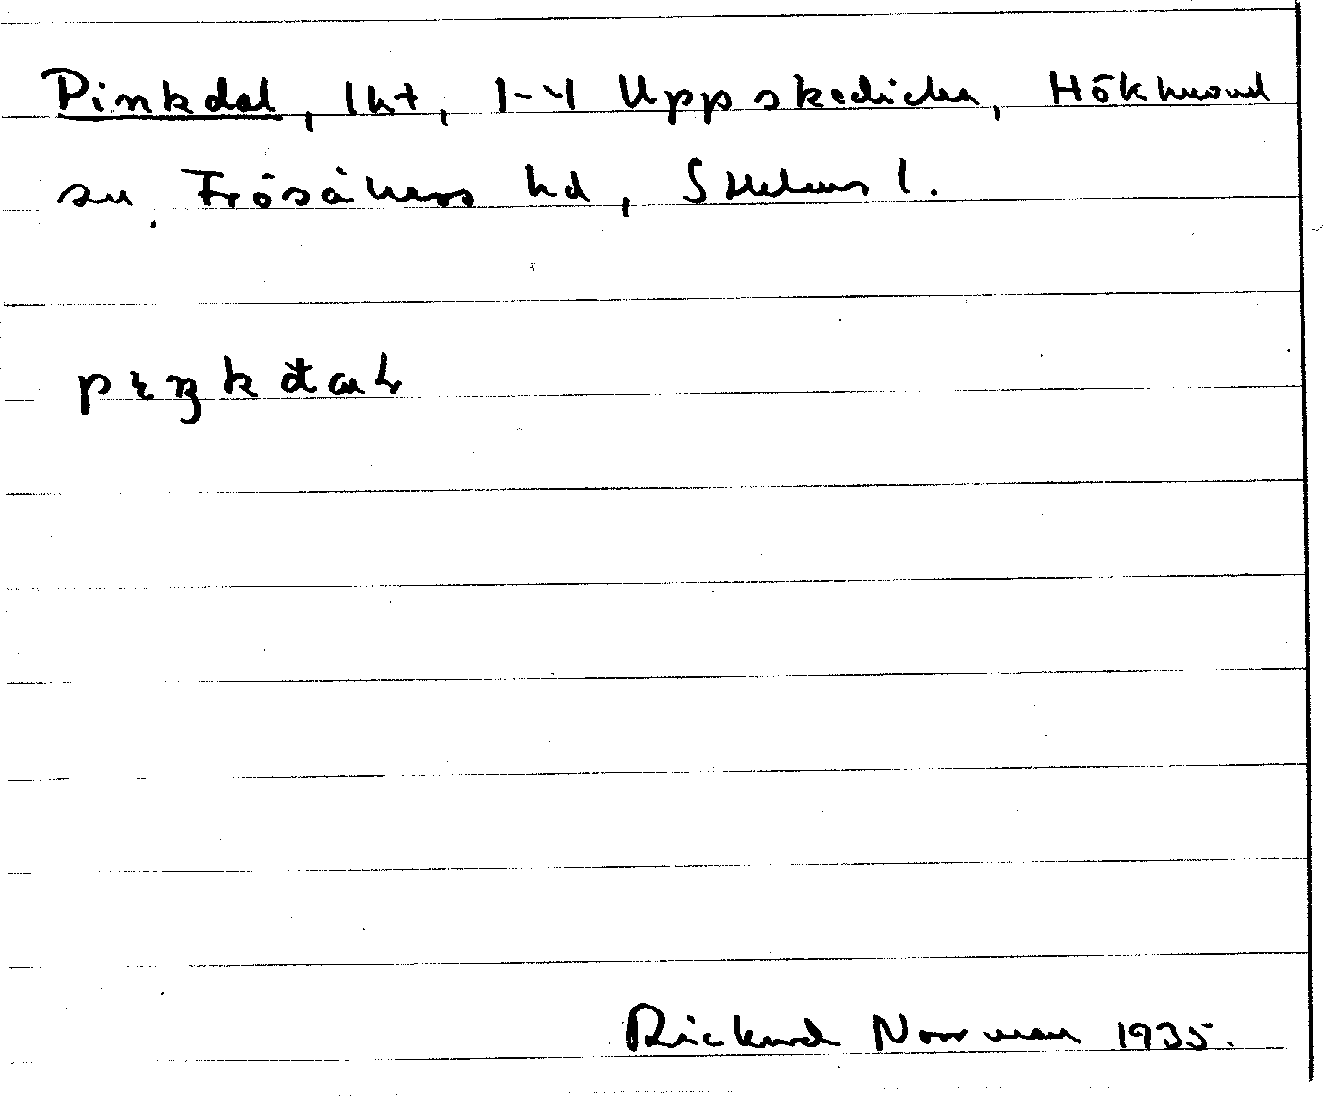 Pinkdal, lht, 1-4 Uppskedicka, Hökhuvud
sn, Frösåkers hd, Sthlms l.
Rickard Norrman 1935.